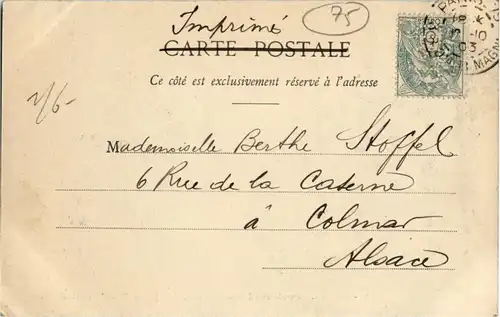 Imprimé
75
CARTE POSTALE
Ce côté est exclusivement réservé à l'adresse
Mademoiselle Berthe Stoffel
6 Rue de la Caserne
à Colmar
Alsace